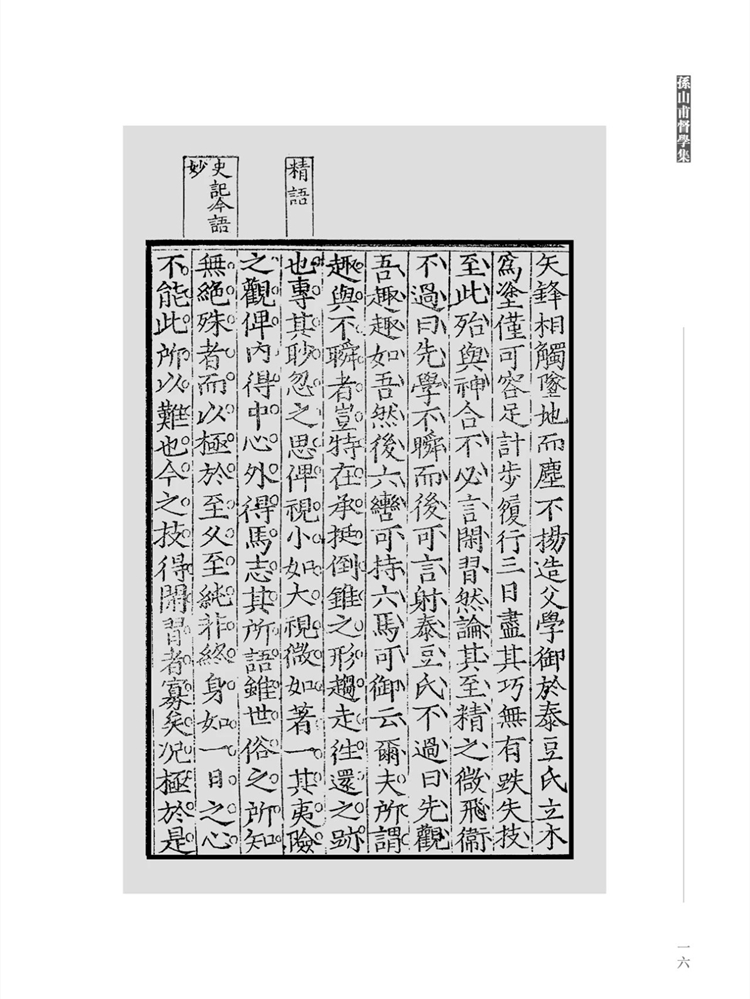 孫山甫督學集
精語
史記今語
妙
矢鋒相觸墜地而塵不揚造父學御於泰豆氏立木
爲塗僅可容足計步履行三日盡其巧無有跌失技
至此殆與神合不必言閑習然論其至精之微飛衞
不過曰先學不瞬而後可言射泰豆氏不過曰先觀
吾趣趣如吾然後六轡可持六馬可御云爾夫所謂
趣與不瞬者豈特在承挺倒錐之形趨走徃還之跡
也專其眇忽之思俾視小如大視微如著一其夷險
之觀俾內得中心外得馬志其所語雖世俗之所知
無絕殊者而以極於至父至純非終身如一日之心
不能此所以難也今之技得閑習者寡矣况極於是
一六